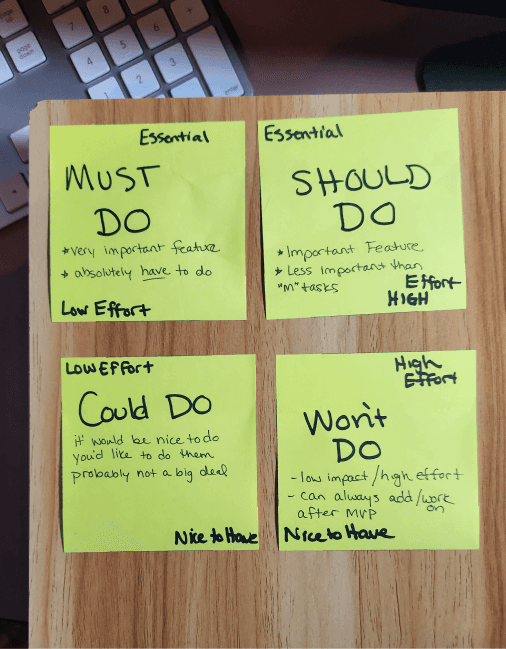 page down
4
5
6
+
1
2
3
Essential
MUST
DO
* very important feature
* absolutely have to do
Low Effort
Essential
SHOULD
DO
* Important Feature
* Less important than
"M" tasks
Effort
HIGH
LOW EFFORT
Could DO
it would be nice to do
you'd like to do them
probably not a big deal
Nice to Have
High
Effort
Won't
DO
- low impact/high effort
- can always add/work on
after MVP
Nice to Have